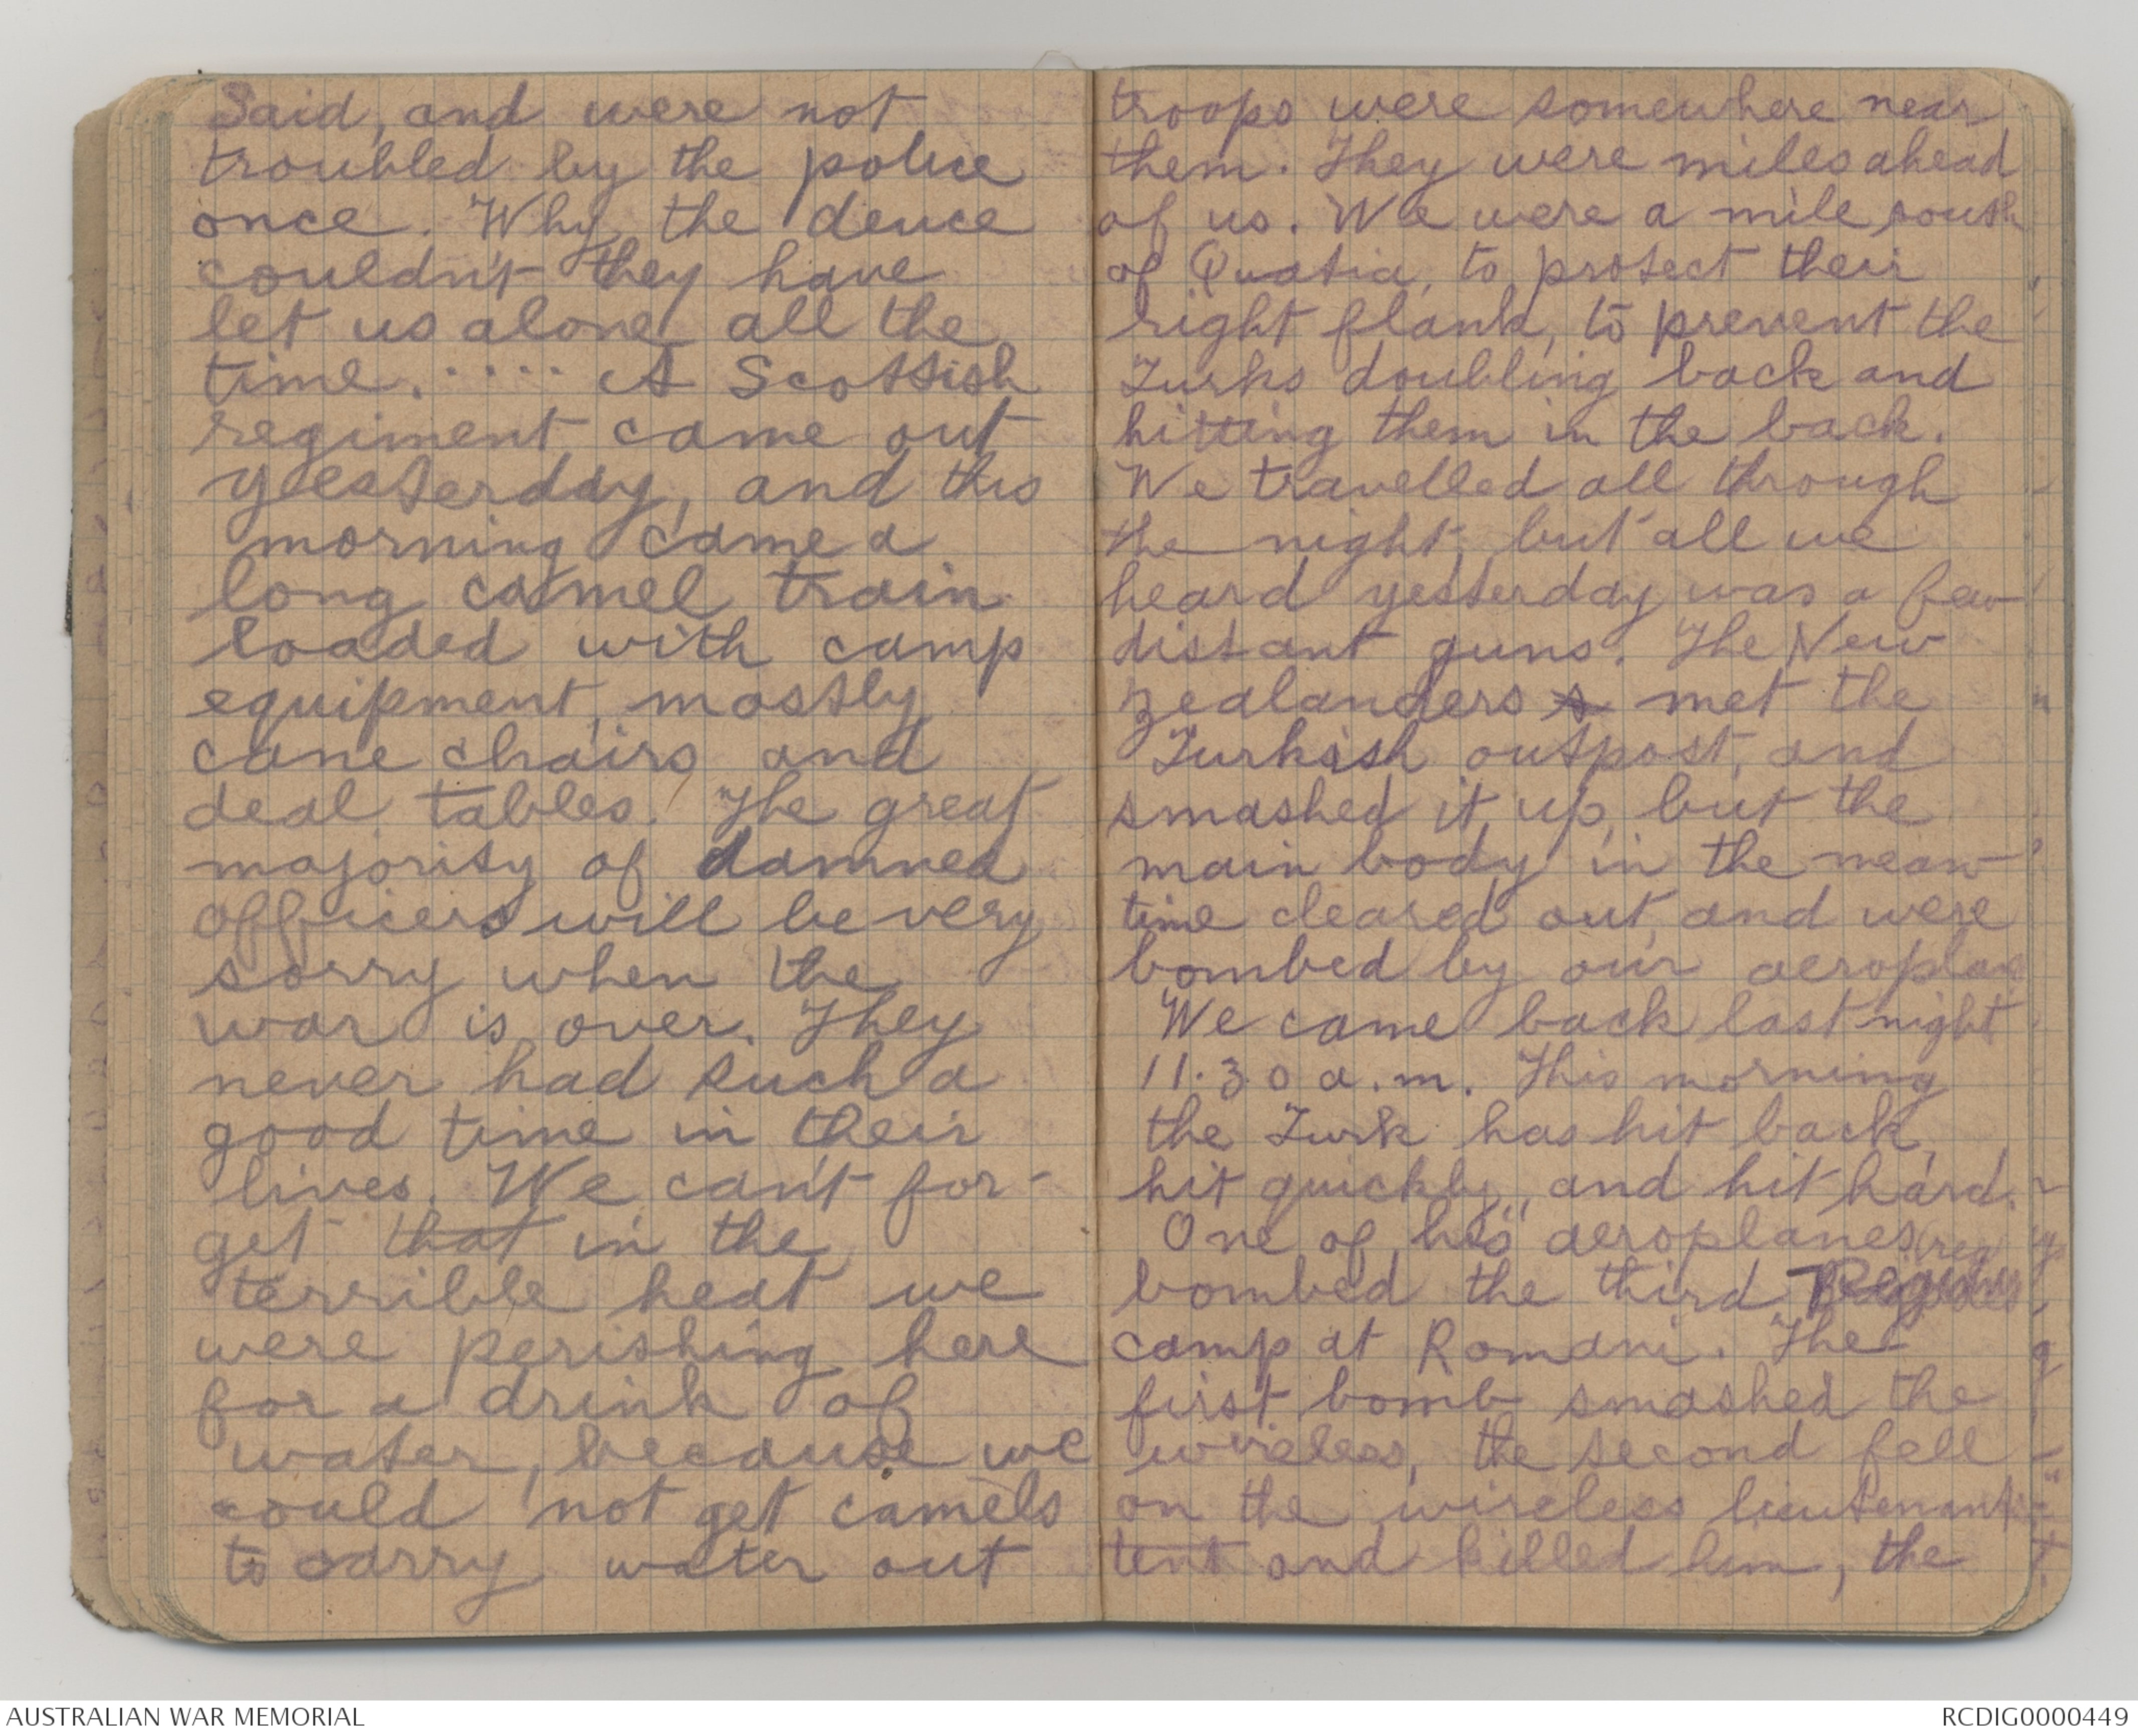 Said, and were not
troubled by the police
once. Why the deuce
couldn't they have
let us alone all the
time. .... A Scottish
regiment came out
yesterday, and this
morning came a
long camel train
loaded with camp
equipment, mostly
cane chairs and
deal tables. The great
majority of damned
officers will be very
sorry when the
war is over. They
never had such a
good time in their
lives. We can't for-
get that in the
terrible heat we
were perishing here
for a drink of
water, because we
could not get camels
to carry water out
troops were somewhere near
them. They were miles ahead
of us. We were a mile south
of Quatia, to protect their
right flank, to prevent the
Turks doubling back and
hitting them in the back.
We travelled all through
the night, but all we
heard yesterday was a few
distant guns. The New
zealanders met the
Turkish outpost, and
smashed it up, but the
main body in the mean
time cleared out, and were
bombed by our aeroplane
We came back last night
11.30 a.m. This morning
the Turk has hit back,
hit quickly, and hit hard.
One of his aeroplanes
bombed the third
camp at Romani. The
first bomb smashed the
wireless, the second fell
on the wireless lieutenant's
tent and killed him, the
AUSTRALIAN WAR MEMORIAL
RCDIG0000449